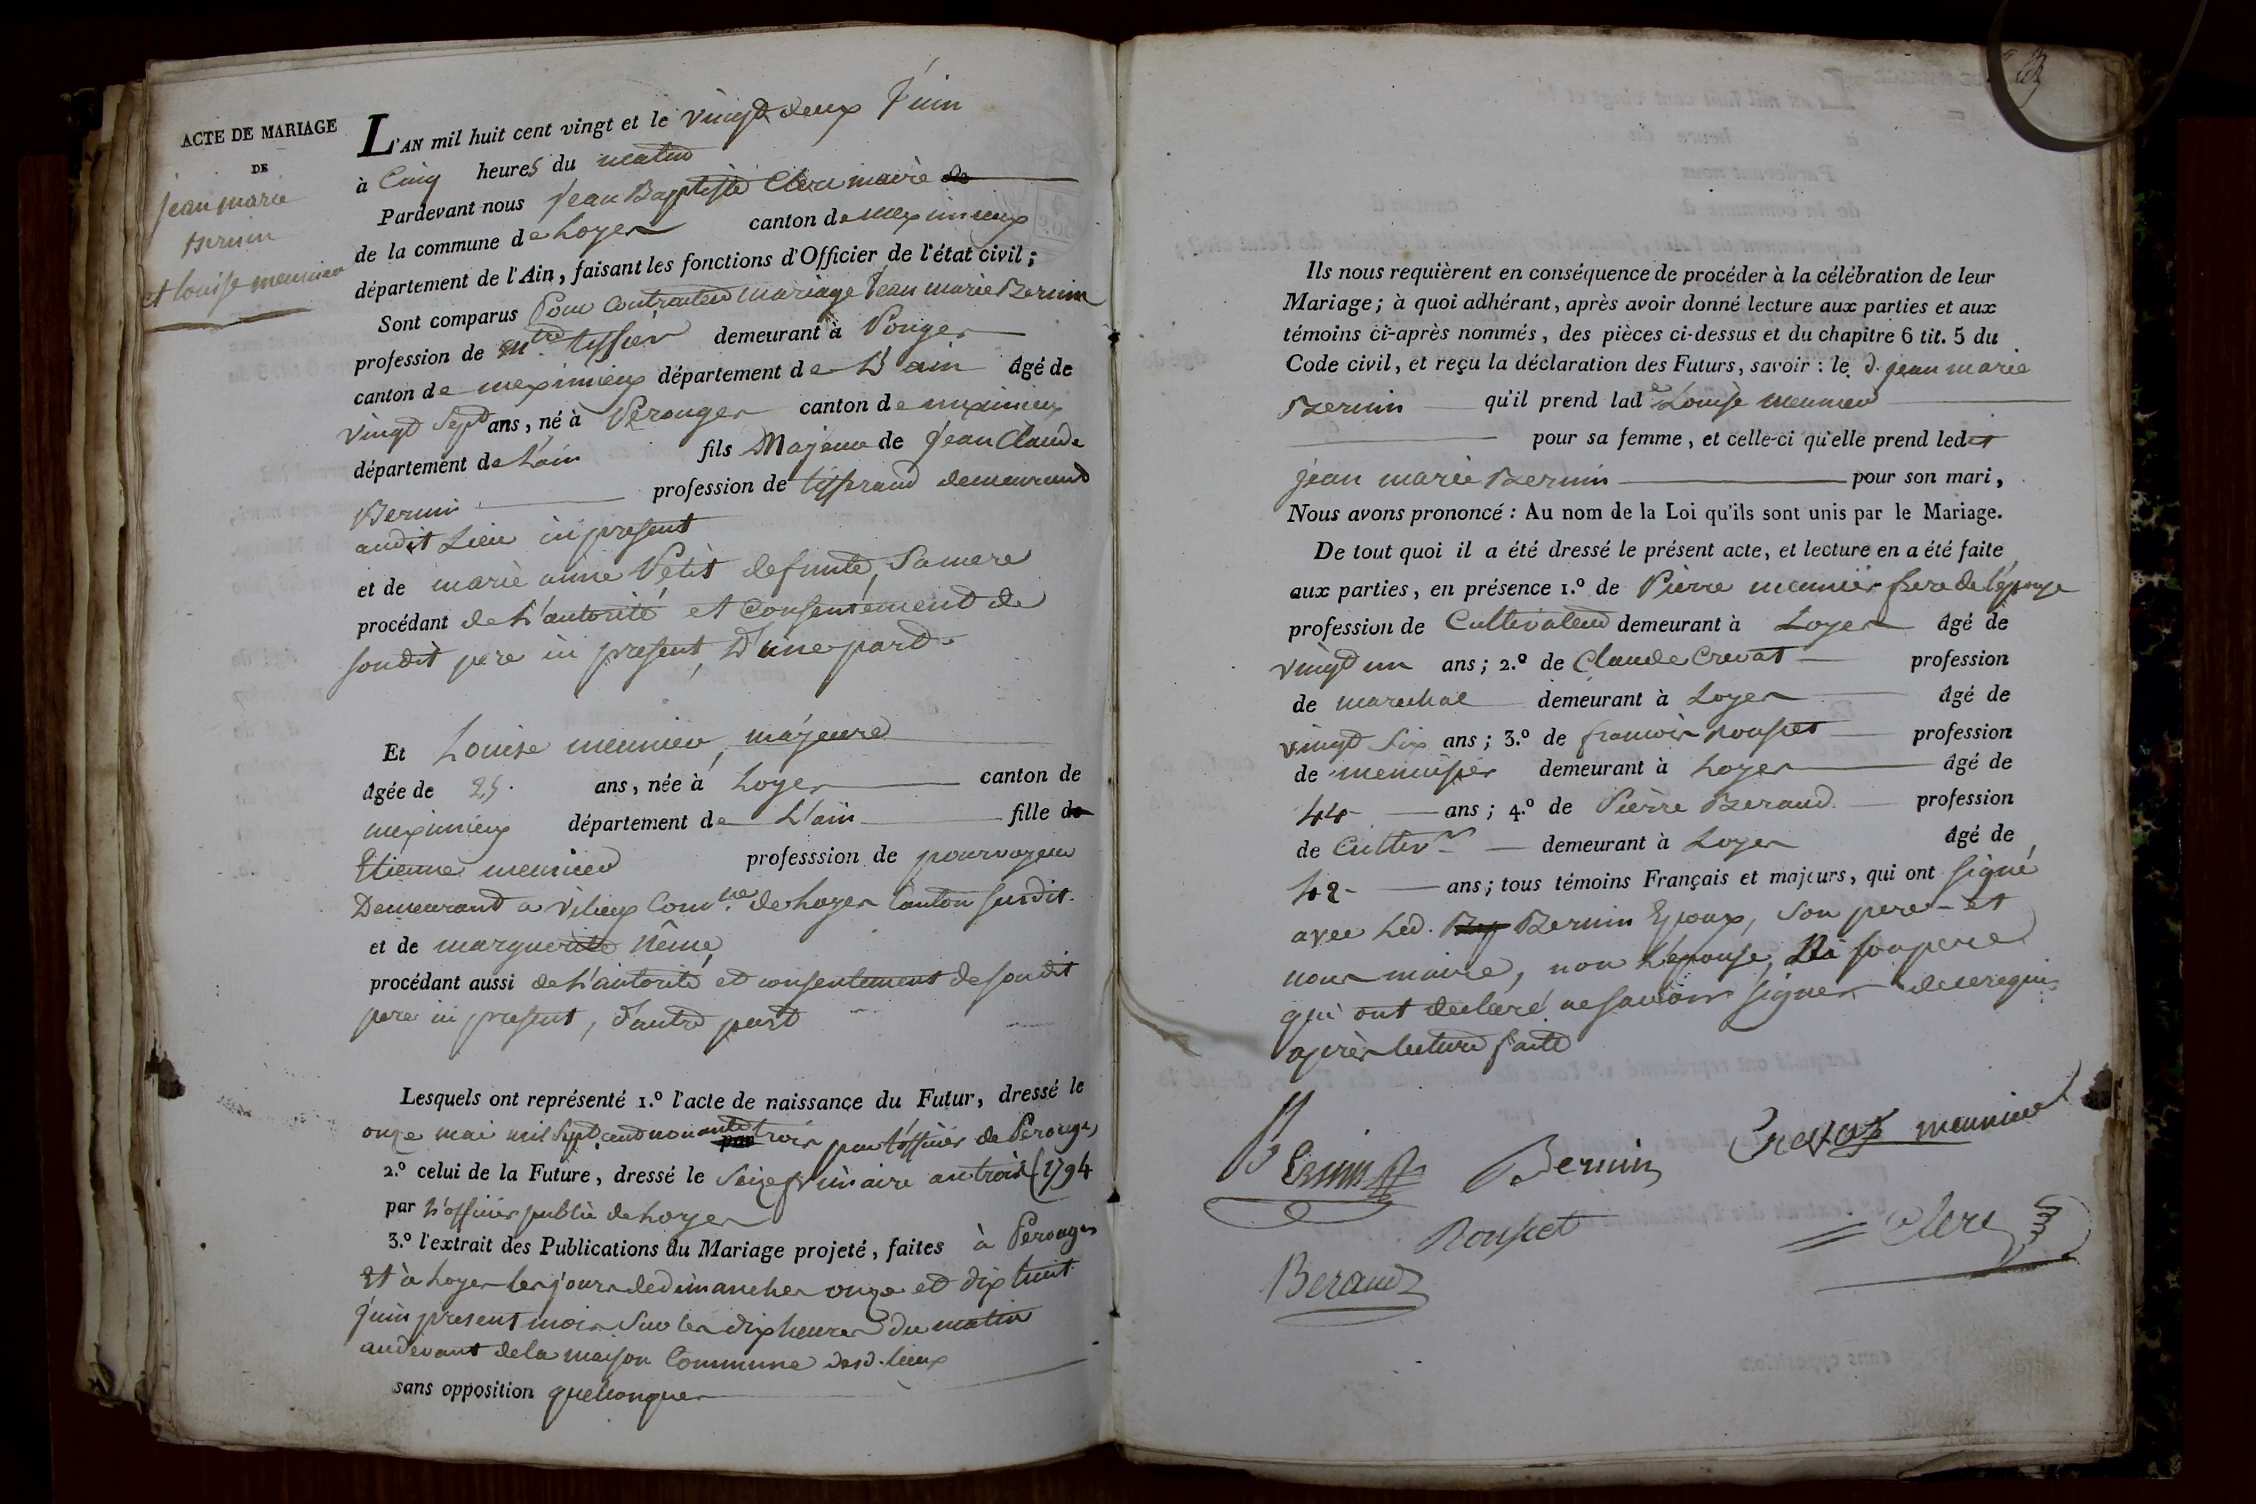 ACTE DE MARIAGE
DE
jean marie
Bernin
et Louise meunier
L'AN mil huit cent vingt et le vingt deux Juin
à Cinq heures du matin
Pardevant nous Jean Baptiste Clerc maire de
de la commune de Loyes canton de meximieux
département de l'Ain, faisant les fonctions d'Officier de l'état civil;
Sont comparus Pour Contracter mariage Jean marie Bernin
profession de m.tre tissier demeurant à Perouges
canton de meximieux département de L'ain âgé de
vingt Sept ans, né à Perouges canton de meximieux
département de L'ain fils Majeur de Jean Claude
Bernin profession de tisserand demeurant
audit Lieu ici present
et de marie anne Petit defunte, Sa mere
procédant de L'autorité et Consentement de
sondit pere ici present, D'une part
Et Louise meunier, majeure
âgée de 25. ans, née à Loyes canton de
meximieux département de L'ain fille de
Etienne meunier professsion de pourvoyeur
Demeurant a Vilieux Com.ne de Loyes Canton susdit.
et de marguerite Nême,
procédant aussi de L'autorité et consentement de sondit
pere ici present, d'autre part
Lesquels ont représenté 1.º l'acte de naissance du Futur, dressé le
onze mai mil Sept cent nonante trois par L'officier de Perouges
2.º celui de la Future, dressé le Seize frimaire an trois (1794
par L'officier public de Loyes
3.º l'extrait des Publications du Mariage projeté, faites à Perouges
Et à Loyes les jours de dimanches onze et dix huit
Juin present mois Sur les dix heures du matin
au devant de la maison Commune desd. lieux
sans opposition quelconques
Ils nous requièrent en conséquence de procéder à la célébration de leur
Mariage; à quoi adhérant, après avoir donné lecture aux parties et aux
témoins ci-après nommés, des pièces ci-dessus et du chapitre 6 tit. 5 du
Code civil, et reçu la déclaration des Futurs, savoir: le d. jean marie
Bernin qu'il prend lad.e Louise meunier
pour sa femme, et celle-ci qu'elle prend ledit
jean marie Bernin pour son mari,
Nous avons prononcé: Au nom de la Loi qu'ils sont unis par le Mariage.
De tout quoi il a été dressé le présent acte, et lecture en a été faite
aux parties, en présence 1.º de Pierre meunier frere de l'épouse
profession de Cultivateur demeurant à Loyes âgé de
vingt un ans; 2.º de Claude Crevat profession
de marechal demeurant à Loyes âgé de
vingt Six ans; 3.º de francois Rousset profession
de menuisier demeurant à Loyes âgé de
44 ans; 4.º de Pierre Beraud profession
de Cultiv.r demeurant à Loyes âgé de
42 ans; tous témoins Français et majeurs, qui ont signé
avec Led. Bernin Epoux, Son pere et
nous maire, non L'épouse, Ni son pere
qui ont declaré ne savoir signer de ce requis
après lecture faite
Bernin Bernin Crevat meunier
Rousset Clerc
Beraud